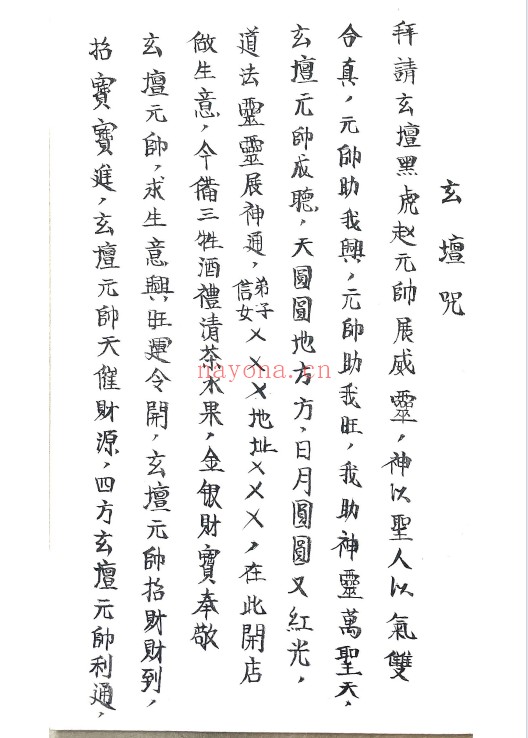 玄壇咒
拜請玄壇黑虎赵元帥展威靈，神以聖人以氣雙
合真，元帥助我興，元帥助我旺，我助神靈萬聖天，
玄壇元帥成聽，天圓圓地方方，日月圓圓又紅光，
道法靈靈展神通，弟子信女×××地址×××，在此開店
做生意，今備三牲酒禮清茶水果，金银財寶奉敬
玄壇元帥，求生意興旺運令開，玄壇元帥招財財到，
招寶寶進，玄壇元帥天催財源，四方玄壇元帥利通，
nayona.cn